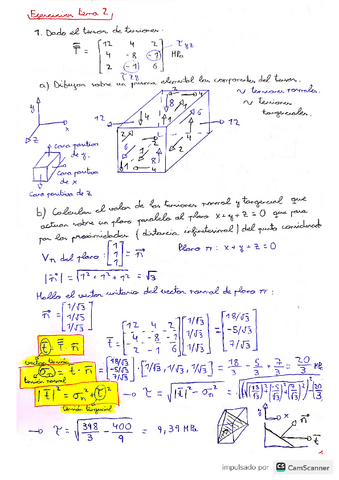 Ejercicios tema 2
1. Dado el tensor de tensiones:
T = [12 4 2
4 -8 -1
2 -1 6] MPa
τyz
τzy
a) Dibujar sobre un prisma elemental las componentes del tensor.
~ tensiones normales.
~ tensiones tangenciales.
y
x
z
Cara positiva de y.
Cara positiva de x
Cara positiva de z
12
12
b) Calcular el valor de las tensiones normal y tangencial que
actúan sobre un plano paralelo al plano x+y+z=0 que pasa
por las proximidades (distancia infinitesimal) del punto considerado
Vn del plano: [1 1 1] = n
Plano π: x+y+z=0
|n| = √(1²+1²+1²) = √3
Hallo el vector unitario del vector normal de plano π:
n = [1/√3 1/√3 1/√3]
t = T · n
t = [12 4 2
4 -8 -1
2 -1 6] [1/√3 1/√3 1/√3] = [18/√3 -5/√3 7/√3]
σn = t · n = [18/√3 -5/√3 7/√3] · [1/√3, 1/√3, 1/√3] = 18/3 - 5/3 + 7/3 = 20/3 MPa
tensión normal
|t|² = σn² + τ²
tensión tangencial
→ τ = √(|t|² - σn²) = √((18/√3)² + (-5/√3)² + (7/√3)²) - (20/3)²
→ τ = √(398/3 - 400/9) = 9,39 MPa
y
x
n
t
1
impulsado por CS CamScanner